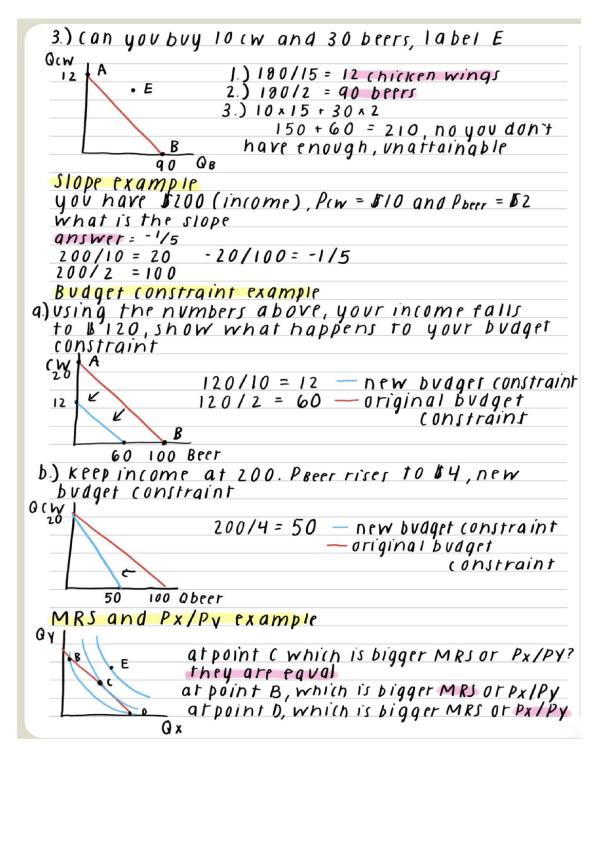 3.) can you buy 10 cw and 30 beers, label E
Qcw
12 A
E
B
90 QB
1.) 180/15 = 12 chicken wings
2.) 180/2 = 90 beers
3.) 10 x 15 + 30 x 2
150 + 60 = 210, no you don't
have enough, unattainable
slope example
you have $200 (income), Pcw = $10 and Pbeer = $2
what is the slope
answer = -1/5
200/10 = 20 -20/100 = -1/5
200/2 = 100
Budget constraint example
a.) using the numbers above, your income falls
to $120, show what happens to your budget
constraint
CW A
20
12
B
60 100 Beer
120/10 = 12 — new budget constraint
120/2 = 60 — original budget
constraint
b.) keep income at 200. Pbeer rises to $4, new
budget constraint
QCW
20
50 100 Qbeer
200/4 = 50 — new budget constraint
— original budget
constraint
MRS and Px/Py example
Qy
B
E
C
D
Qx
at point C which is bigger MRS or Px/PY?
they are equal
at point B, which is bigger MRS or Px/Py
at point D, which is bigger MRS or Px/Py